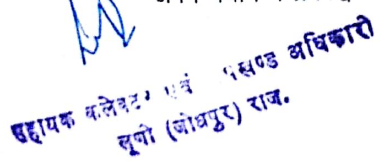 सहायक कलेक्टर एवं खण्ड अधिकारी
लूणी (जोधपुर) राज.